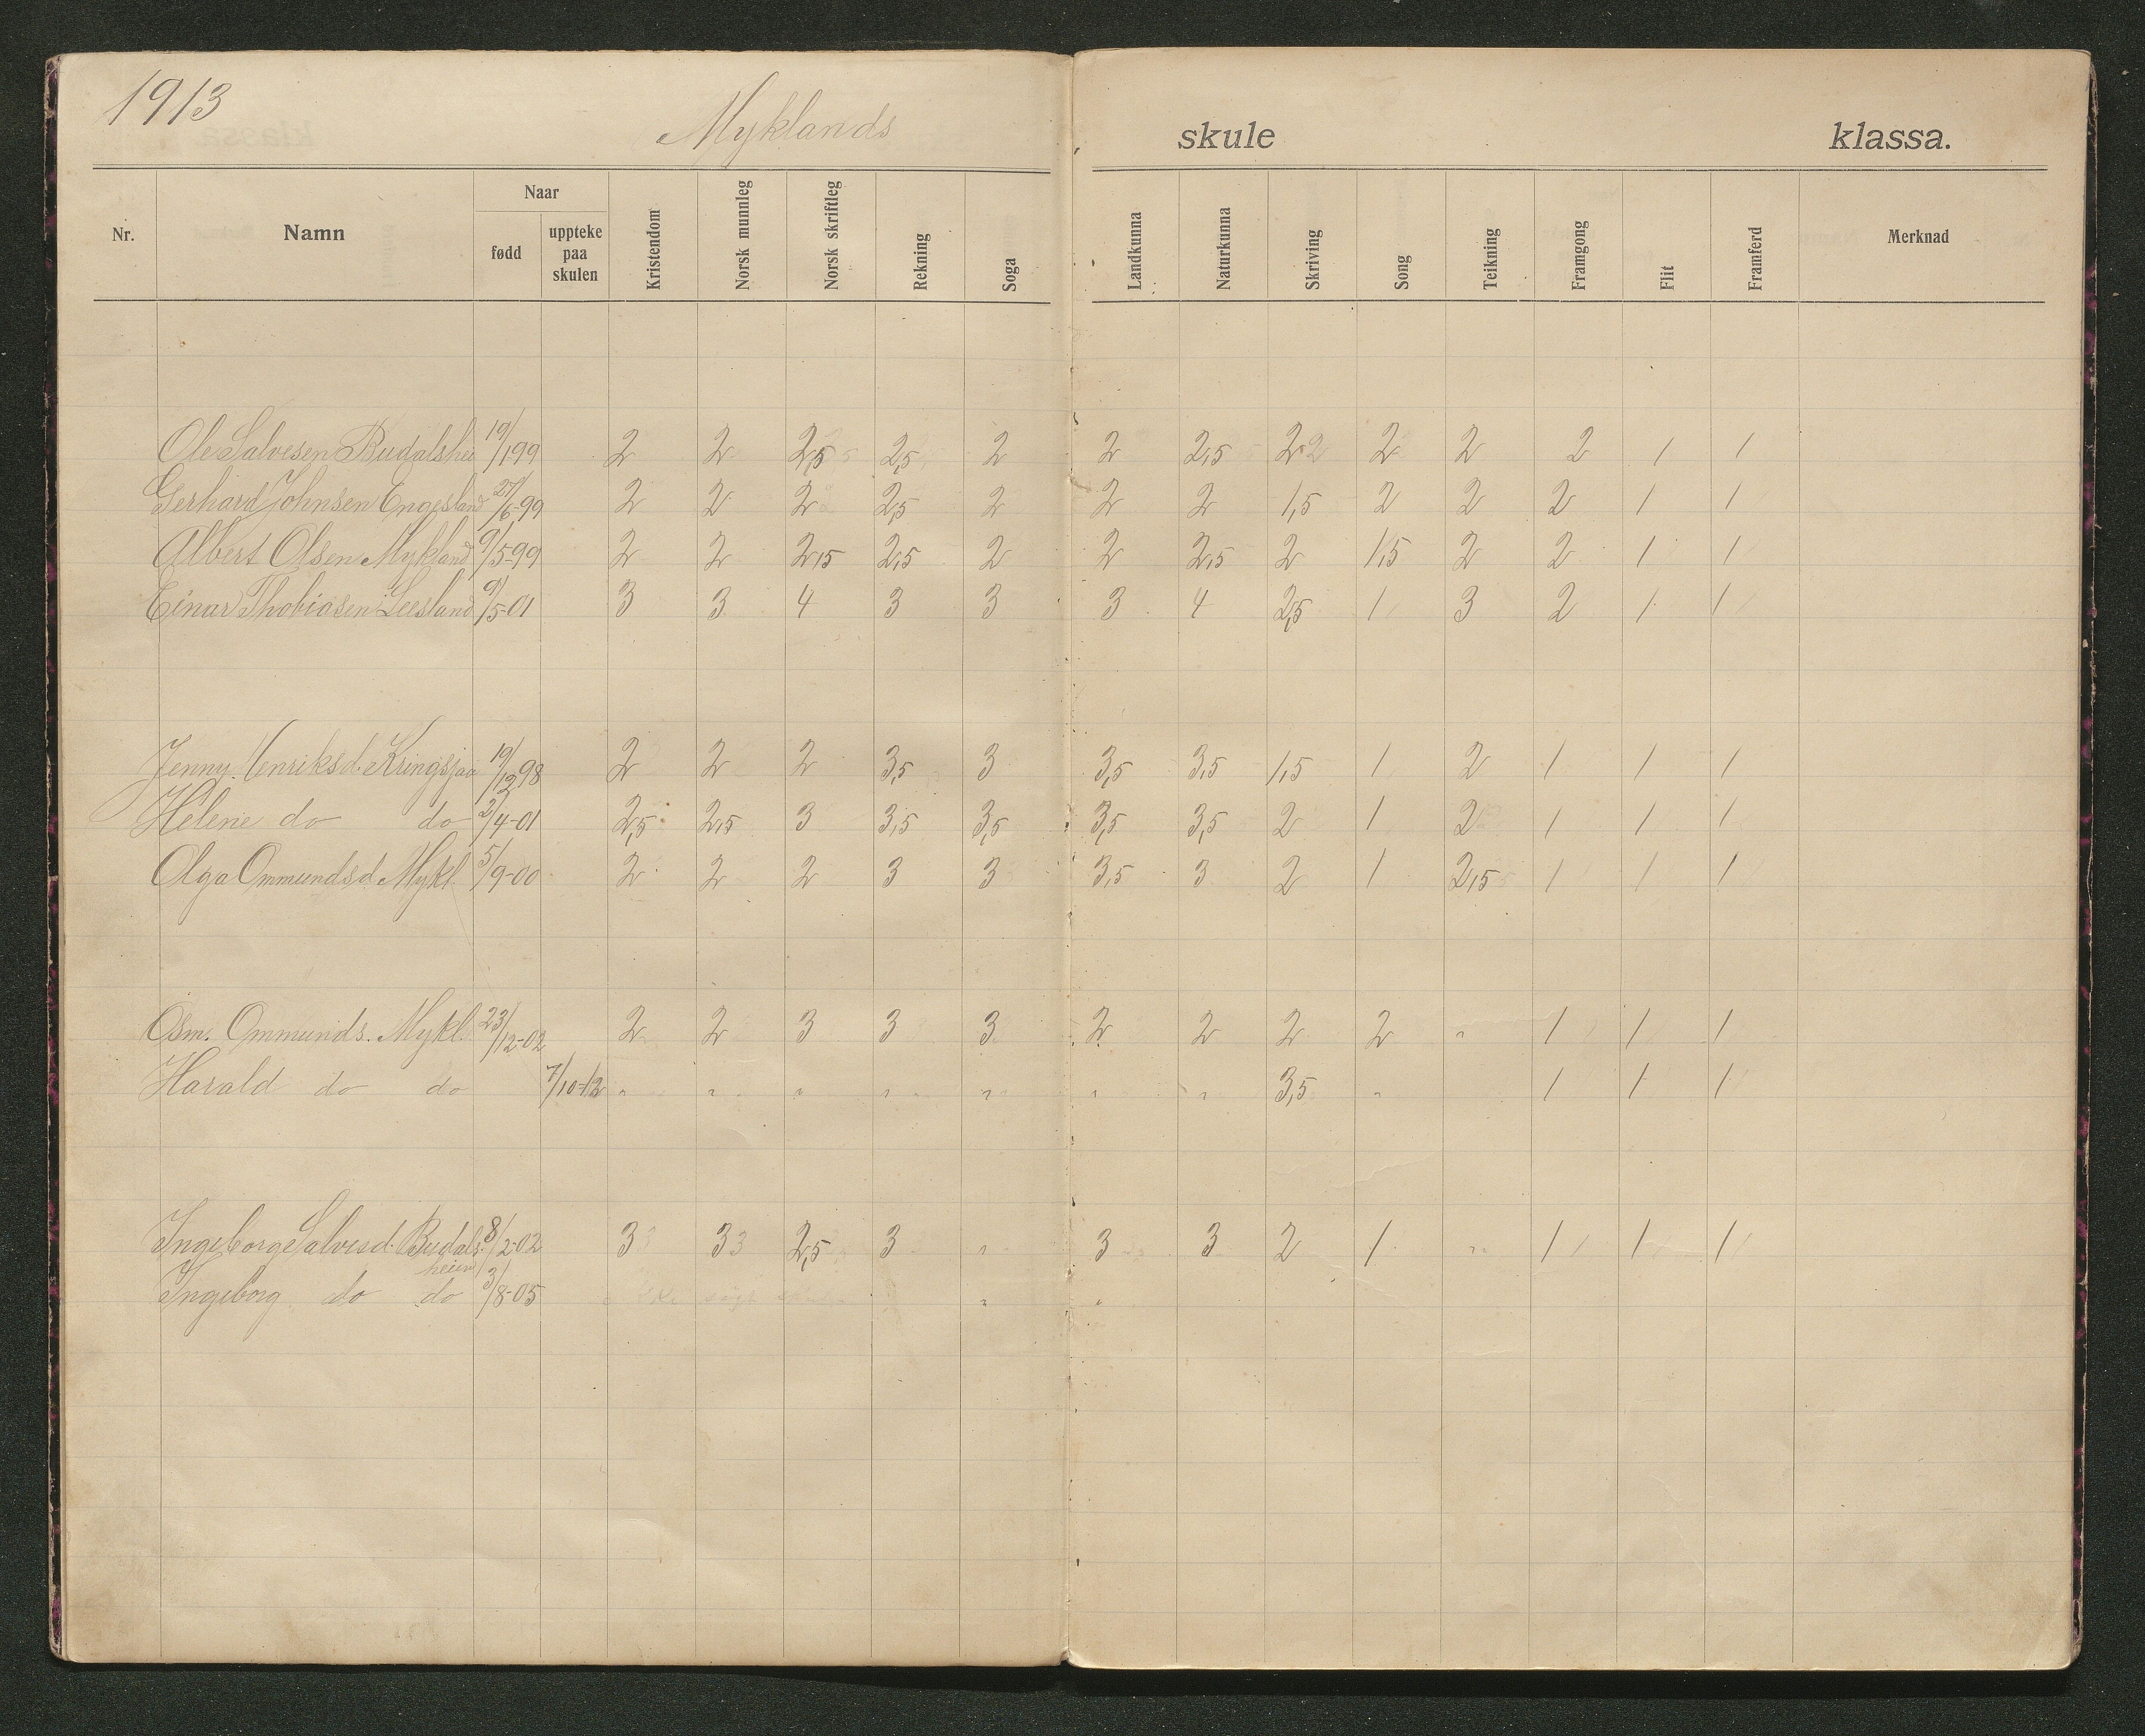 1913
Myklands skule klassa.
Nr. Namn Naar fødd uppteke paa skulen Kristendom Norsk munnleg Norsk skriftleg Rekning Soga Landkunna Naturkunna Skriving Song Teikning Framgong Flit Framferd Merknad
Ole Salvesen Budalshei 19/1 99 2 2 2,5 2,5 2 2 2,5 2 2 2 2 1 1
Gerhard Johnsen Engesland 27/6-99 2 2 2 2,5 2 2 2 1,5 2 2 2 1 1
Albert Olsen Mykland 9/5-99 2 2 2,5 2,5 2 2 2,5 2 1,5 2 2 1 1
Einar Thobiasen Leesland 9/5-01 3 3 4 3 3 3 4 2,5 1 3 2 1 1
Jenny Henriksd. Kringsjaa 19/12 98 2 2 2 3,5 3 3,5 3,5 1,5 1 2 1 1 1
Helene do do 2/4-01 2,5 2,5 3 3,5 3,5 3,5 3,5 2 1 2 1 1 1
Olga Ommundsd. Mykl. 5/9-00 2 2 2 3 3 3,5 3 2 1 2,5 1 1 1
Osm. Ommunds. Mykl. 23/12-02 2 2 3 3 3 2 2 2 2 " 1 1 1
Harald do do 7/10-12 " " " " " " " 3,5 " 1 1 1
Ingeborg Salvesd. Budals- 8/2-02 3 3 2,5 3 " 3 3 2 1 " 1 1 1
heien
Ingeborg do do 3/8-05 " "